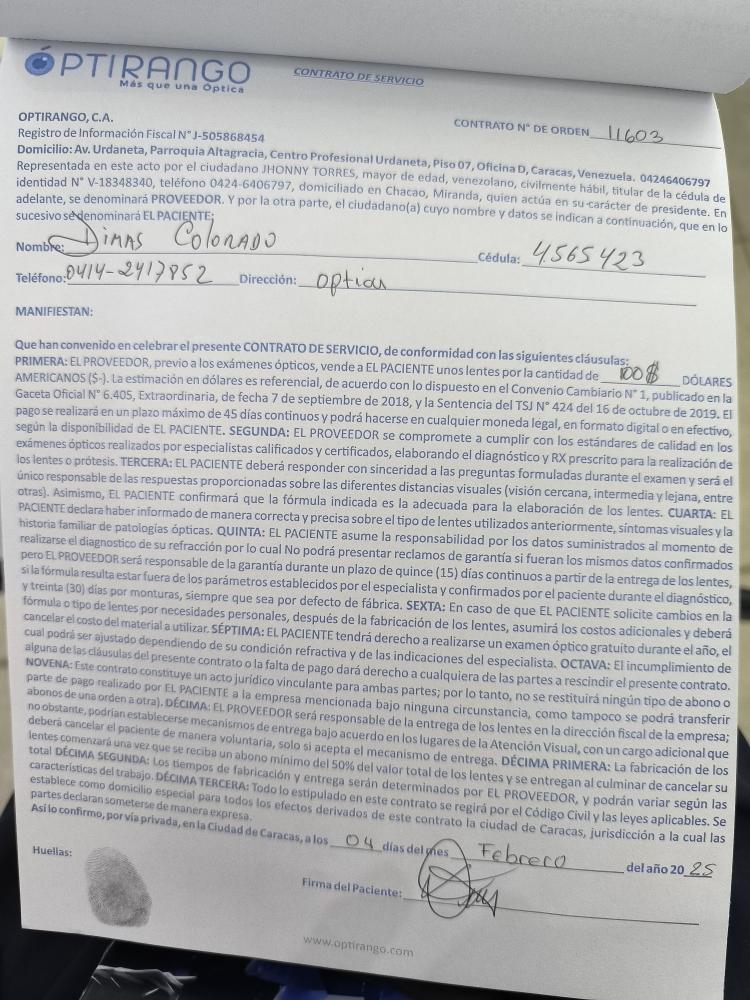 ÓPTIRANGO
Más que una Óptica
CONTRATO DE SERVICIO
OPTIRANGO, C.A.
CONTRATO N° DE ORDEN 11603
Registro de Información Fiscal N° J-505868454
Domicilio: Av. Urdaneta, Parroquia Altagracia, Centro Profesional Urdaneta, Piso 07, Oficina D, Caracas, Venezuela. 04246406797
Representada en este acto por el ciudadano JHONNY TORRES, mayor de edad, venezolano, civilmente hábil, titular de la cédula de
identidad N° V-18348340, teléfono 0424-6406797, domiciliado en Chacao, Miranda, quien actúa en su carácter de presidente. En
adelante, se denominará PROVEEDOR. Y por la otra parte, el ciudadano(a) cuyo nombre y datos se indican a continuación, que en lo
sucesivo se denominará EL PACIENTE;
Nombre: Dimas Colorado Cédula: 4565423
Teléfono: 0414-2417852 Dirección:
MANIFIESTAN:
Que han convenido en celebrar el presente CONTRATO DE SERVICIO, de conformidad con las siguientes cláusulas:
PRIMERA: EL PROVEEDOR, previo a los exámenes ópticos, vende a EL PACIENTE unos lentes por la cantidad de 100$ DÓLARES
AMERICANOS ($-). La estimación en dólares es referencial, de acuerdo con lo dispuesto en el Convenio Cambiario N° 1, publicado en la
Gaceta Oficial N° 6.405, Extraordinaria, de fecha 7 de septiembre de 2018, y la Sentencia del TSJ N° 424 del 16 de octubre de 2019. El
pago se realizará en un plazo máximo de 45 días continuos y podrá hacerse en cualquier moneda legal, en formato digital o en efectivo,
según la disponibilidad de EL PACIENTE. SEGUNDA: EL PROVEEDOR se compromete a cumplir con los estándares de calidad en los
exámenes ópticos realizados por especialistas calificados y certificados, elaborando el diagnóstico y RX prescrito para la realización de
los lentes o prótesis. TERCERA: EL PACIENTE deberá responder con sinceridad a las preguntas formuladas durante el examen y será el
único responsable de las respuestas proporcionadas sobre las diferentes distancias visuales (visión cercana, intermedia y lejana, entre
otras). Asimismo, EL PACIENTE confirmará que la fórmula indicada es la adecuada para la elaboración de los lentes. CUARTA: EL
PACIENTE declara haber informado de manera correcta y precisa sobre el tipo de lentes utilizados anteriormente, síntomas visuales y la
historia familiar de patologías ópticas. QUINTA: EL PACIENTE asume la responsabilidad por los datos suministrados al momento de
realizarse el diagnostico de su refracción por lo cual No podrá presentar reclamos de garantía si fueran los mismos datos confirmados
pero EL PROVEEDOR será responsable de la garantía durante un plazo de quince (15) días continuos a partir de la entrega de los lentes,
si la fórmula resulta estar fuera de los parámetros establecidos por el especialista y confirmados por el paciente durante el diagnóstico,
y treinta (30) días por monturas, siempre que sea por defecto de fábrica. SEXTA: En caso de que EL PACIENTE solicite cambios en la
fórmula o tipo de lentes por necesidades personales, después de la fabricación de los lentes, asumirá los costos adicionales y deberá
cancelar el costo del material a utilizar. SÉPTIMA: EL PACIENTE tendrá derecho a realizarse un examen óptico gratuito durante el año, el
cual podrá ser ajustado dependiendo de su condición refractiva y de las indicaciones del especialista. OCTAVA: El incumplimiento de
alguna de las cláusulas del presente contrato o la falta de pago dará derecho a cualquiera de las partes a rescindir el presente contrato.
NOVENA: Este contrato constituye un acto jurídico vinculante para ambas partes; por lo tanto, no se restituirá ningún tipo de abono o
parte de pago realizado por EL PACIENTE a la empresa mencionada bajo ninguna circunstancia, como tampoco se podrá transferir
abonos de una orden a otra). DÉCIMA: EL PROVEEDOR será responsable de la entrega de los lentes en la dirección fiscal de la empresa;
no obstante, podrían establecerse mecanismos de entrega bajo acuerdo en los lugares de la Atención Visual, con un cargo adicional que
deberá cancelar el paciente de manera voluntaria, solo si acepta el mecanismo de entrega. DÉCIMA PRIMERA: La fabricación de los
lentes comenzará una vez que se reciba un abono mínimo del 50% del valor total de los lentes y se entregan al culminar de cancelar su
total DÉCIMA SEGUNDA: Los tiempos de fabricación y entrega serán determinados por EL PROVEEDOR, y podrán variar según las
características del trabajo. DÉCIMA TERCERA: Todo lo estipulado en este contrato se regirá por el Código Civil y las leyes aplicables. Se
establece como domicilio especial para todos los efectos derivados de este contrato la ciudad de Caracas, jurisdicción a la cual las
partes declaran someterse de manera expresa.
Así lo confirmo, por vía privada, en la Ciudad de Caracas, a los 04 días del mes Febrero del año 20 25
Huellas:
Firma del Paciente:
www.optirango.com